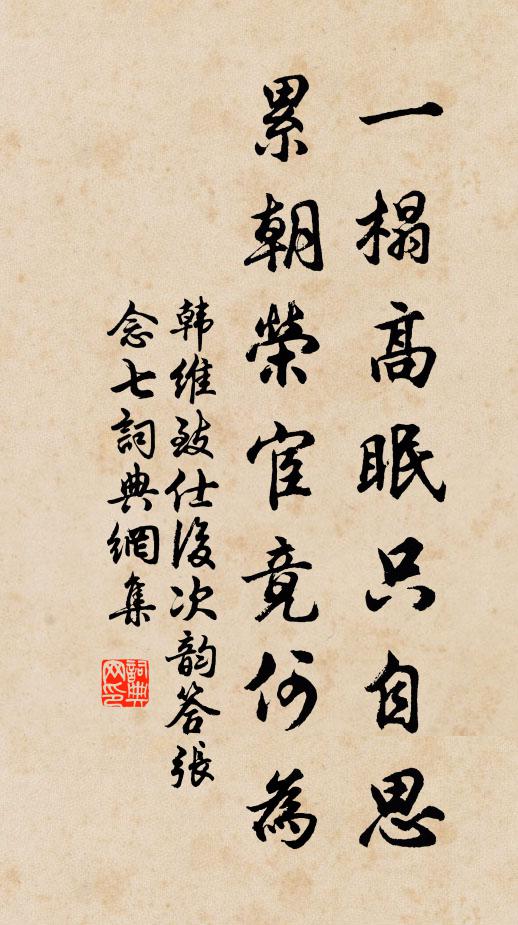 一榻高眠只自思
累朝榮宦竟何為
韩維致仕後次韵答張
念七詞典網集
詞典网印